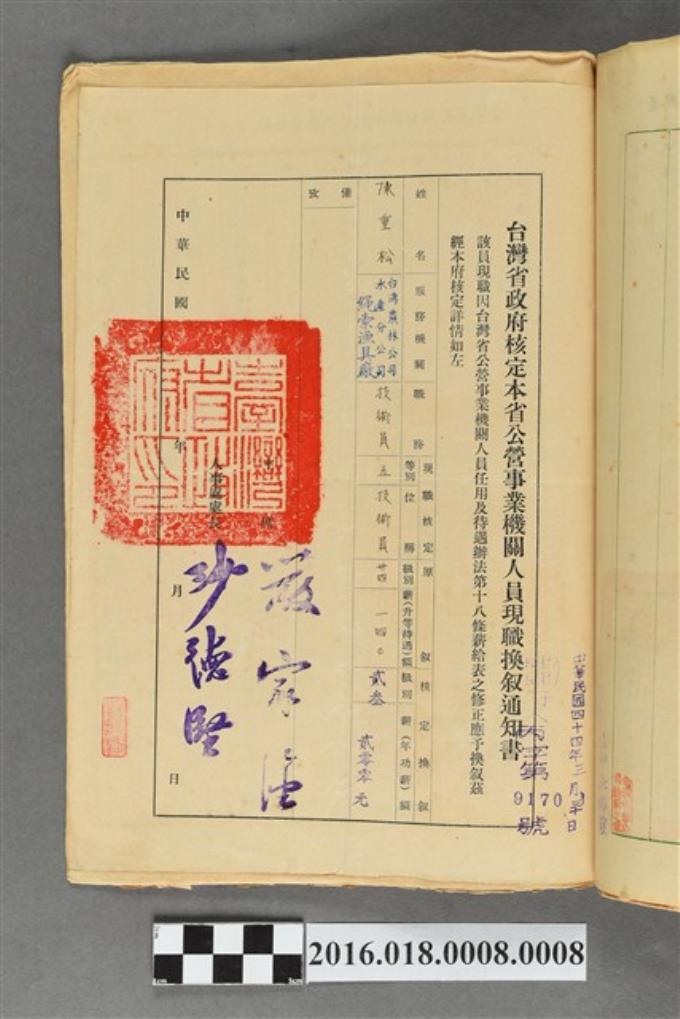 中華民國四十四年三月　日
台灣省政府核定本省公營事業機關人員現職換叙通知書
丙字第9170號
該員現職因台灣省公營事業機關人員任用及待遇辦法第十八條薪給表之修正應予換叙茲
經本府核定詳情如左
姓名
服務機關
職務
現職核定
等別
位稱
原叙
級別
薪(升等待遇)額
核定換叙
級別
薪(年功薪)額
陳重松
台灣農林公司
水產分公司
繩索漁具廠
技術員
五
技術員
廿四
一四〇
貳叁
貳零零元
備攷
主席
嚴家淦
人事處處長
沙德堅
中華民國　年　月　日
臺灣省政府印
2016.018.0008.0008